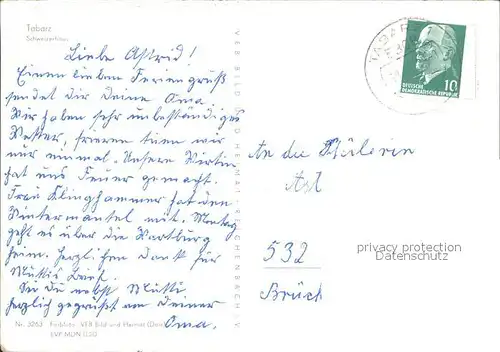 Tabarz
Schweizerhaus
Liebe Astrid!
Einen lieben Feriengruß
sendet dir Deine Oma.
Wir haben sehr unbeständiges
Wetter, frieren tuen wir
nur einmal. Unsere Wirtin
hat uns Feuer gemacht.
Frau Klinghammer hat den
Wintermantel mit. Montag
geht es über die Wartburg
heim. Herzlichen Dank für
Muttis Brief.
Sei Du nebst Mutti
herzlich gegrüßt von Deiner
Oma.
Nr. 3263 Farbfoto: VEB Bild und Heimat
EVP MDN 0,20
VEB BILD UND HEIMAT REICHENBACH I. V.
TABARZ
10
DEUTSCHE
DEMOKRATISCHE REPUBLIK
An die Schülerin
532
privacy protection
Datenschutz